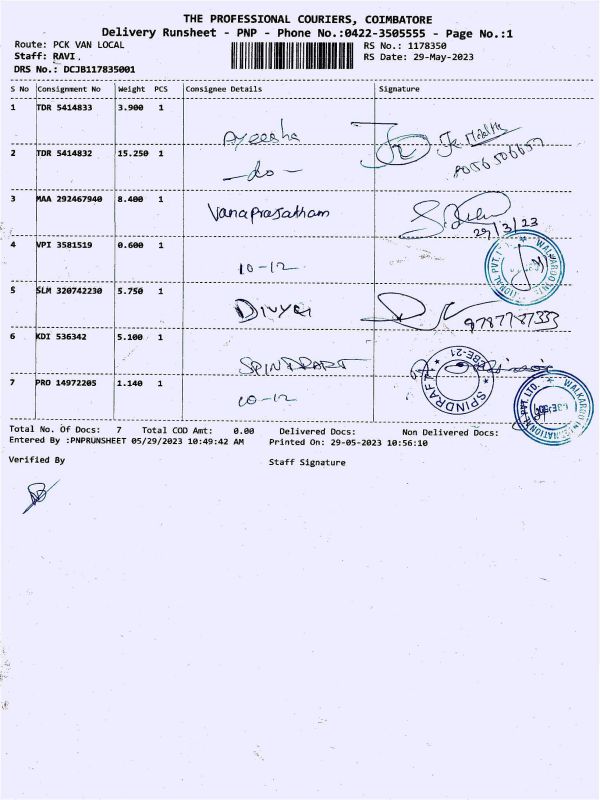 THE PROFESSIONAL COURIERS, COIMBATORE
Delivery Runsheet - PNP - Phone No.:0422-3505555 - Page No.:1
Route: PCK VAN LOCAL RS No.: 1178350
Staff: RAVI. RS Date: 29-May-2023
DRS No.: DCJB117835001
S No Consignment No Weight PCS Consignee Details Signature
1 TDR 5414833 3.900 1
Ayeesha
2 TDR 5414832 15.250 1
- do -
3 MAA 292467940 8.400 1
Vanaprasatham
29/3/23
4 VPI 3581519 0.600 1
10-12
5 SLM 320742230 5.750 1
Divya
9787787333
6 KDI 536342 5.100 1
SPINDRAFT
SPINDRAFT CBE-21
7 PRO 14972205 1.140 1
10-12
Total No. Of Docs: 7 Total COD Amt: 0.00 Delivered Docs: Non Delivered Docs:
Entered By :PNPRUNSHEET 05/29/2023 10:49:42 AM Printed On: 29-05-2023 10:56:10
Verified By Staff Signature